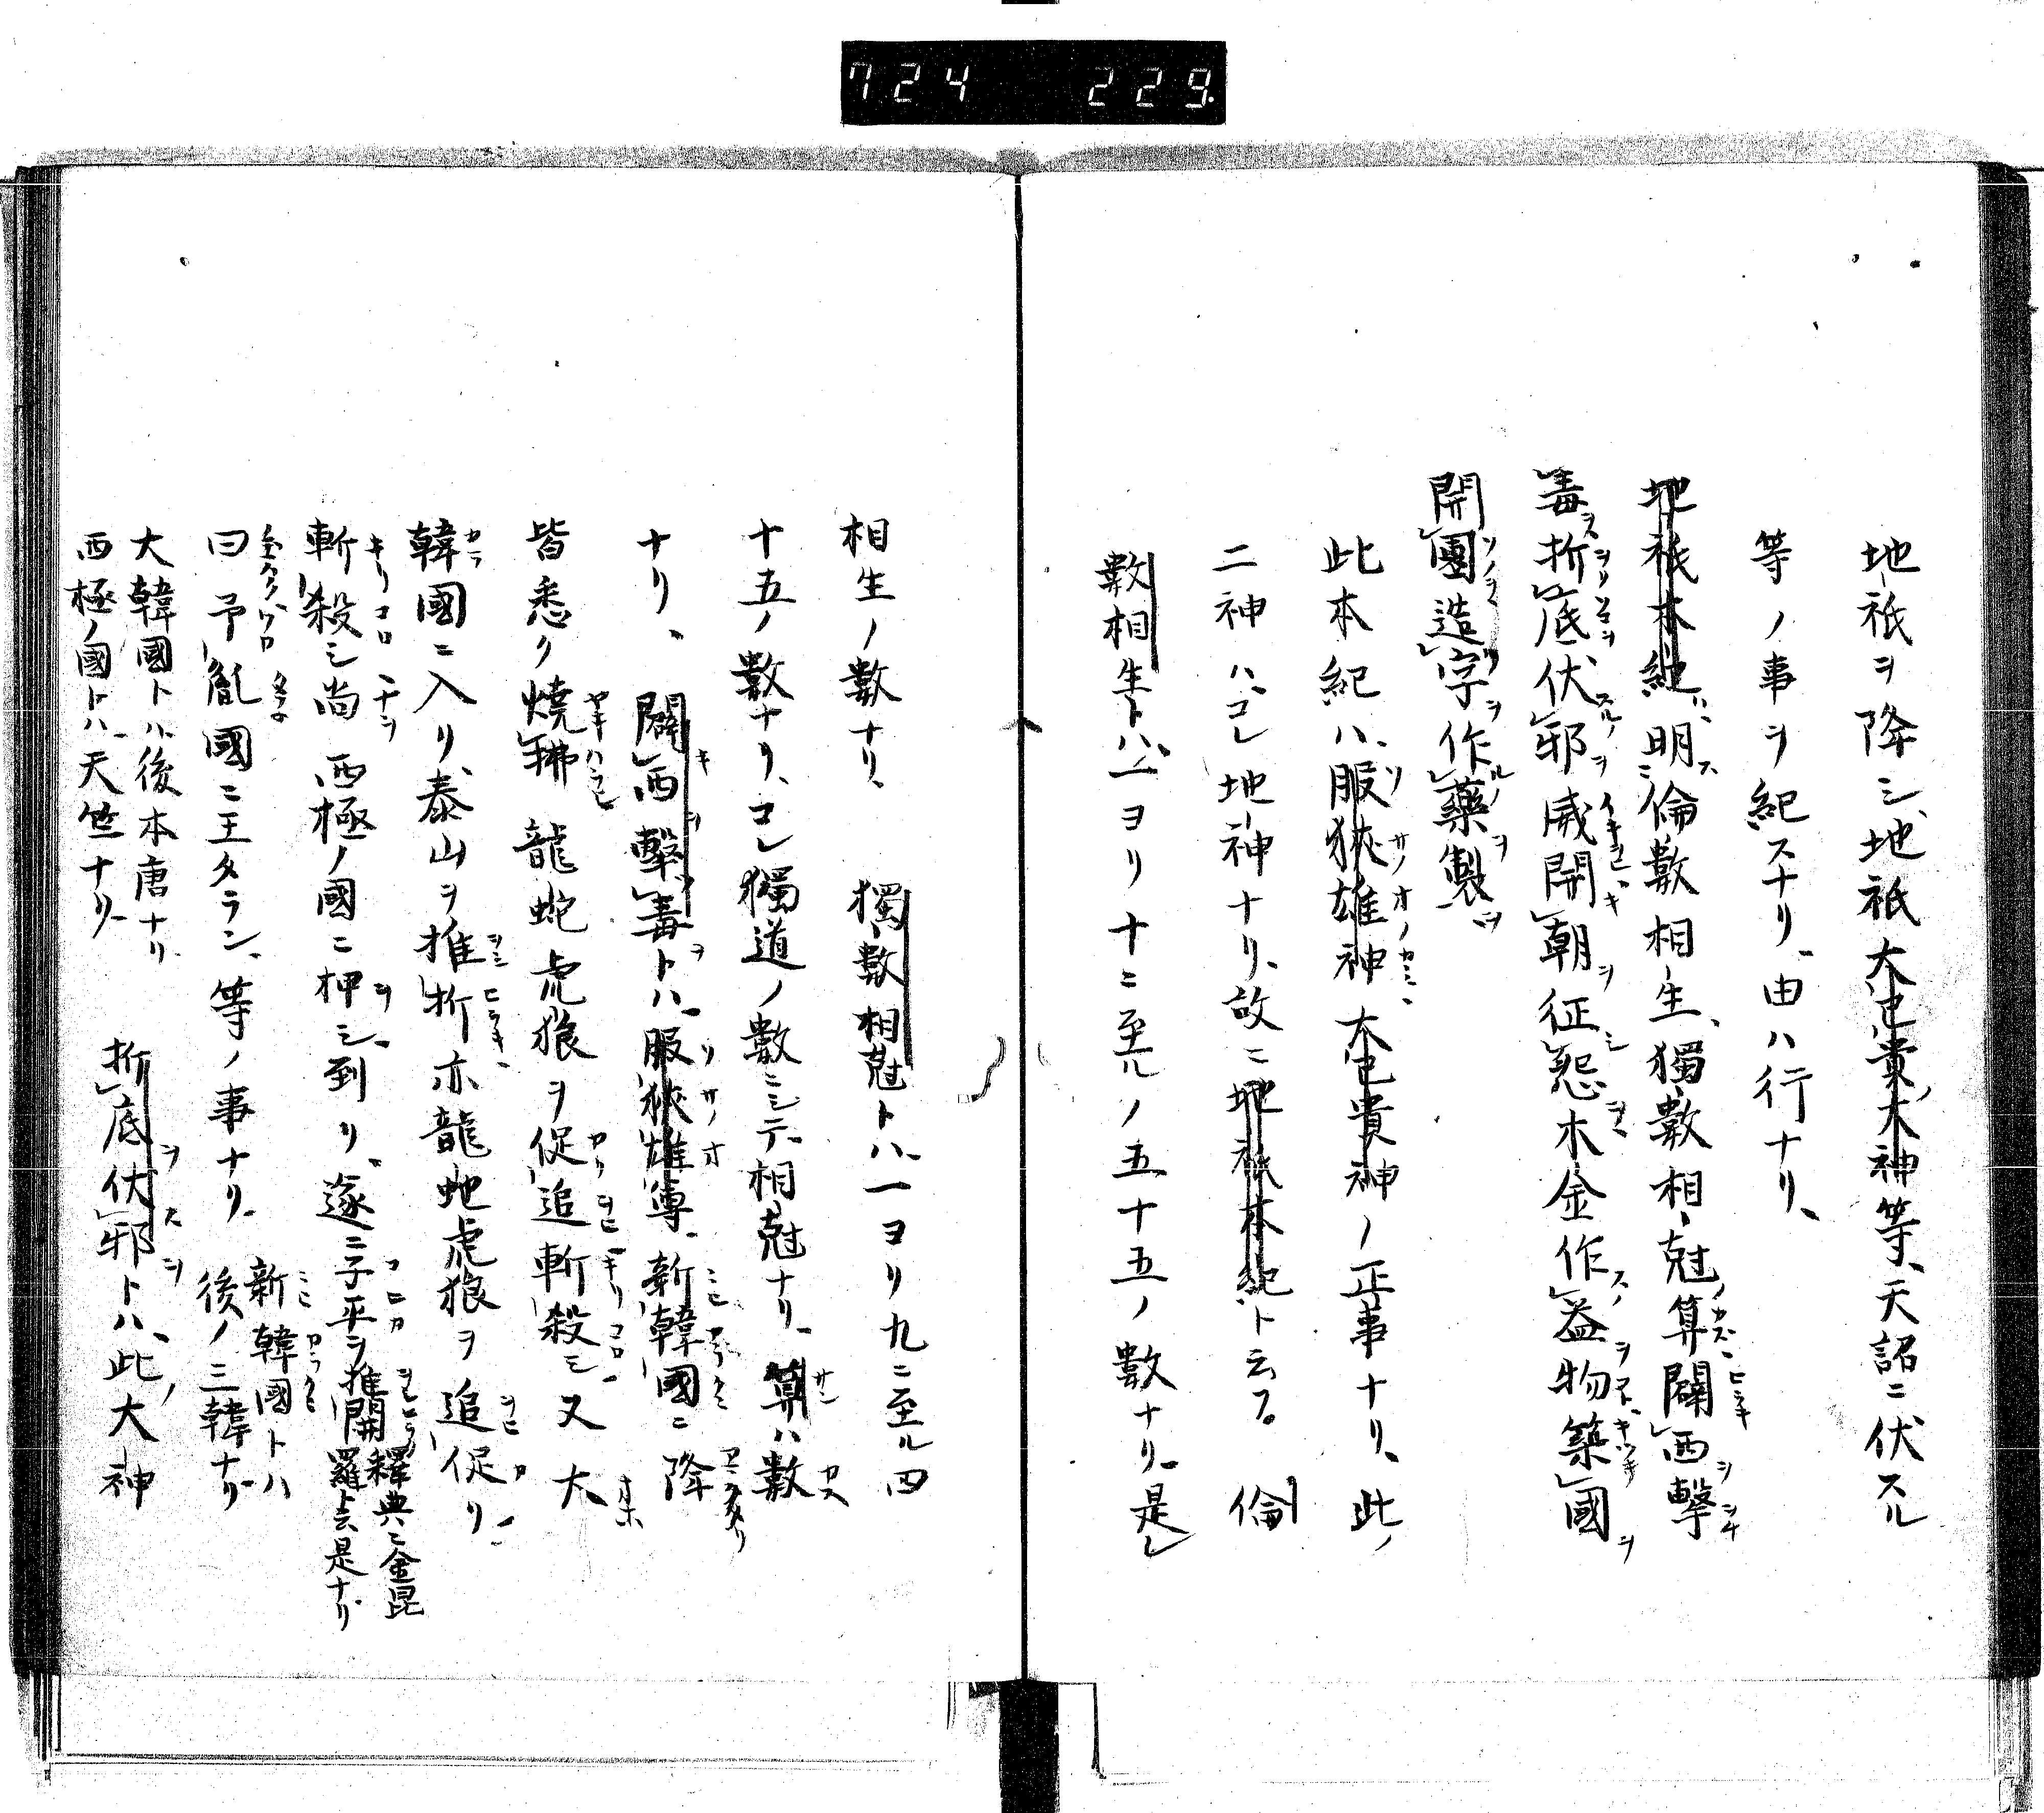 724 229.
地祇ヲ降シ、地祇大己貴大神等、天詔ニ伏スル
等ノ事ヲ紀スナリ、由ハ行ナリ、
地祇本紀ハ、明ニス倫數相生、獨數相尅ノ算、闢西撃
毒折底伏邪威開朝征怨木金作益物築國
開園造字作藥製
此本紀ハ、服狹雄神大己貴神ノ正事ナリ、此ノ
二神ハ、コレ地神ナリ、故ニ地祇本紀ト云フ。倫
數相生トハ、一ヨリ十ニ至ルノ五十五ノ數ナリ、是レ
相生ノ數ナリ、獨數相尅トハ、一ヨリ九ニ至ル四
十五ノ數ナリ、コレ獨道ノ數ニシテ、相尅ナリ、算ハ數
ナリ、闢西擊毒トハ、服狹雄尊、新韓國ニ降
皆悉ク燒拂龍蛇虎狼ヲ促追斬殺シ又大
韓國ニ入リ、泰山ヲ推折亦龍蛇虎狼ヲ追促リ
斬殺シ尚西極ノ國ニ押シ到リ、遂ニ子平ヲ推開 釋典ニ金昆羅ト云是ナリ
曰予胤國ニ王タラン、等ノ事ナリ、新韓國トハ後ノ三韓ナリ
大韓國トハ後本唐ナリ
西極ノ國トハ、天竺ナリ 折底伏邪トハ、此ノ大神